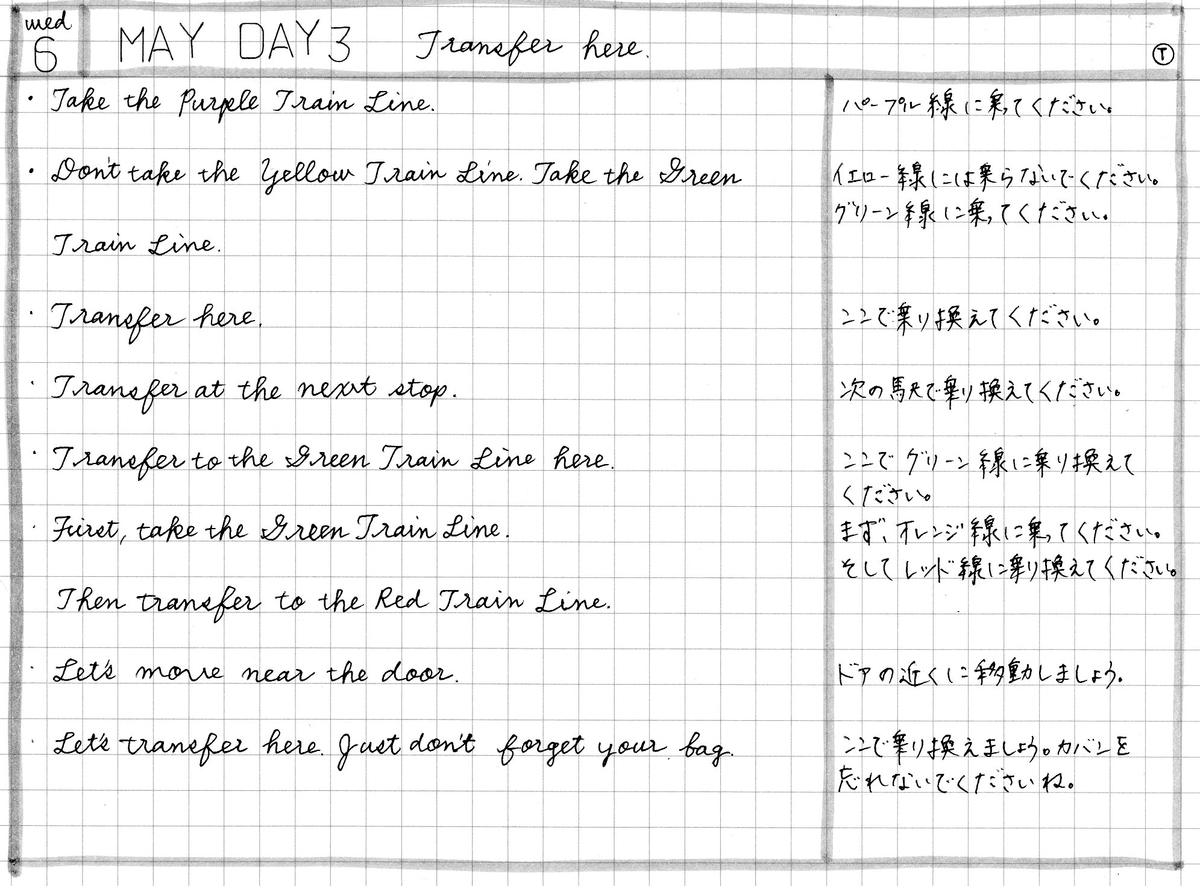 wed
6
MAY DAY 3 Transfer here.
T
・ Take the Purple Train Line.
パープル線に乗ってください。
・ Don't take the Yellow Train Line. Take the Green
イエロー線には乗らないでください。
グリーン線に乗ってください。
Train Line.
・ Transfer here.
ここで乗り換えてください。
・ Transfer at the next stop.
次の駅で乗り換えてください。
・ Transfer to the Green Train Line here.
ここでグリーン線に乗り換えて
ください。
・ First, take the Green Train Line.
まず、オレンジ線に乗ってください。
そしてレッド線に乗り換えてください。
Then transfer to the Red Train Line.
・ Let's move near the door.
ドアの近くに移動しましょう。
・ Let's transfer here. Just don't forget your bag.
ここで乗り換えましょう。カバンを
忘れないでくださいね。